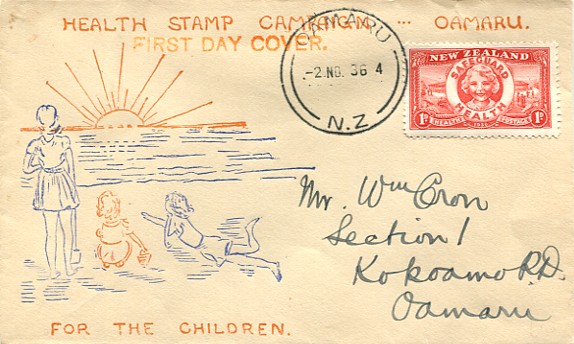 HEALTH STAMP CAMPAIGN ... OAMARU.
FIRST DAY COVER.
OAMARU
-2.NO.36 4
N.Z
NEW ZEALAND
SAFEGUARD
HEALTH
1D HEALTH 1936 POSTAGE 1D
Mr. Wm Cron
Section 1
Kokoamo R.D.
Oamaru
FOR THE CHILDREN.